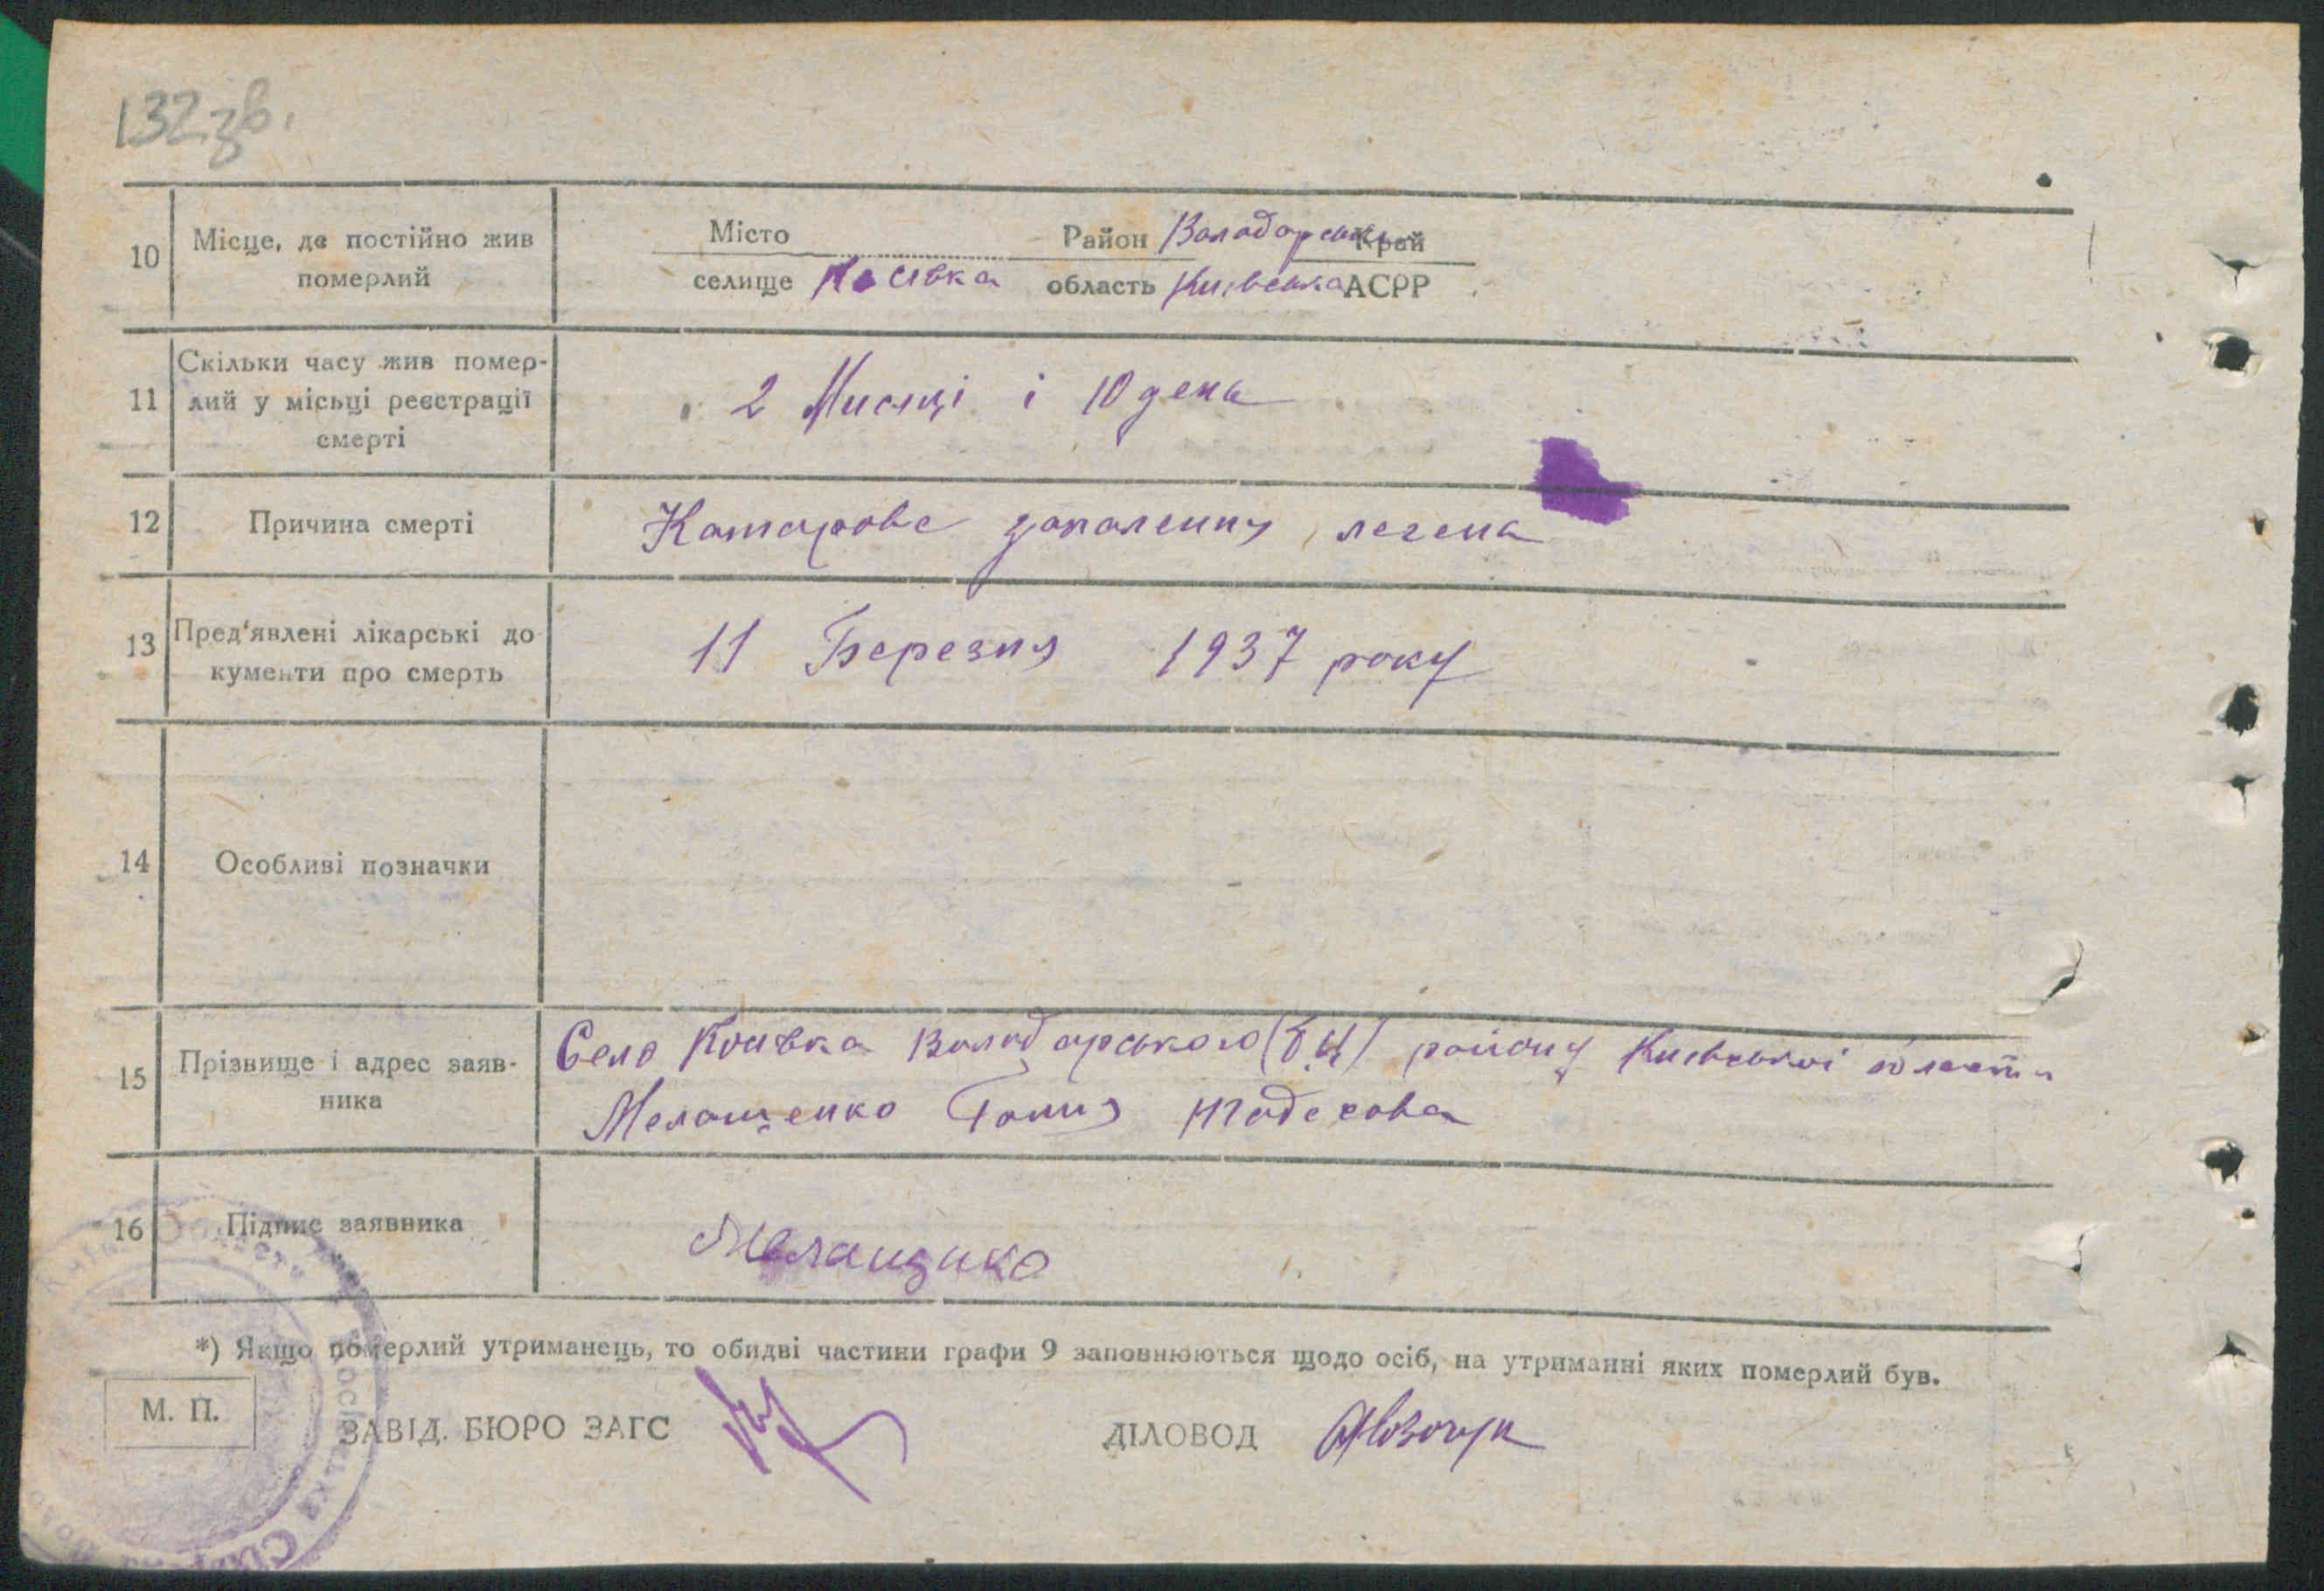 132 зв.
10 Місце, де постійно жив померлий
Місто Район Володарськ Край
селище Косівка область Київська АСРР
11 Скільки часу жив помер-
лий у місьці реєстрації
смерті
2 Мисяці і 10 день
12 Причина смерті
Катарове запалення легень
13 Пред'явлені лікарські до
кументи про смерть
11 Березня 1937 року
14 Особливі позначки
15 Прізвище і адрес заяв-
ника
Село Косівка Володарського (БЦ) району Київської области
Мелащенко Ганя
16 Підпис заявника
Мелащенко
*) Якщо померлий утриманець, то обидві частини графи 9 заповнюються щодо осіб, на утриманні яких померлий був.
М. П.
ЗАВІД. БЮРО ЗАГС
ДІЛОВОД